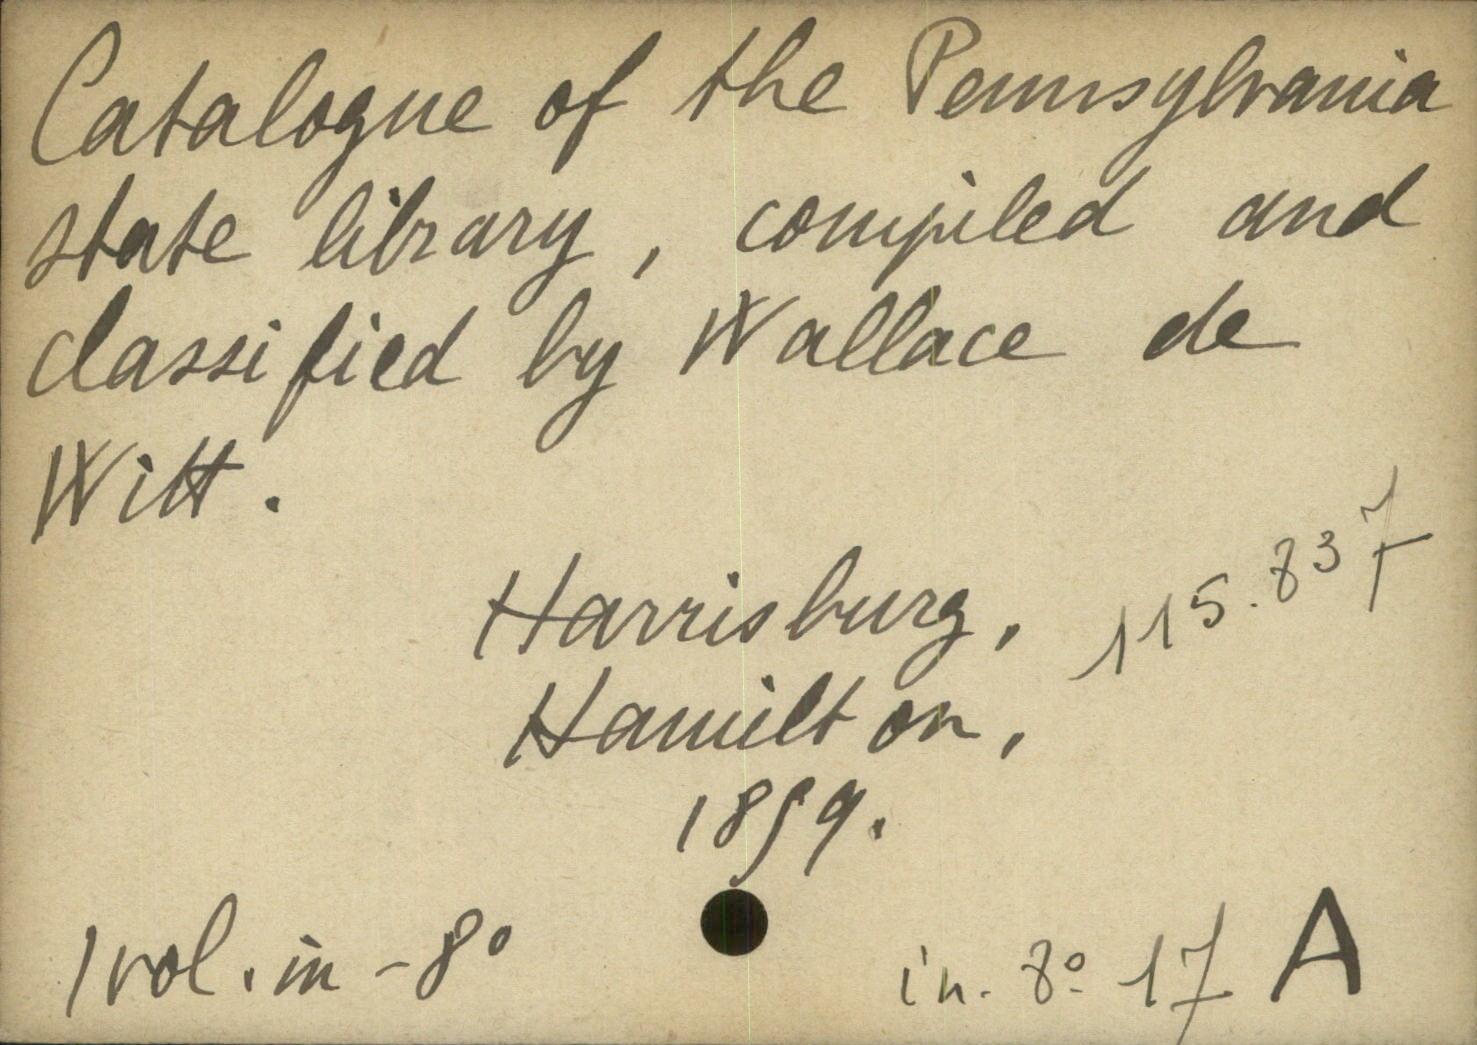 Catalogue of the Pennsylvania
state library, compiled and
classified by Wallace de
Witt.
Harrisburg,
115.837
Hamilton,
1859.
1 vol. in-8°
in. 8° 17 A